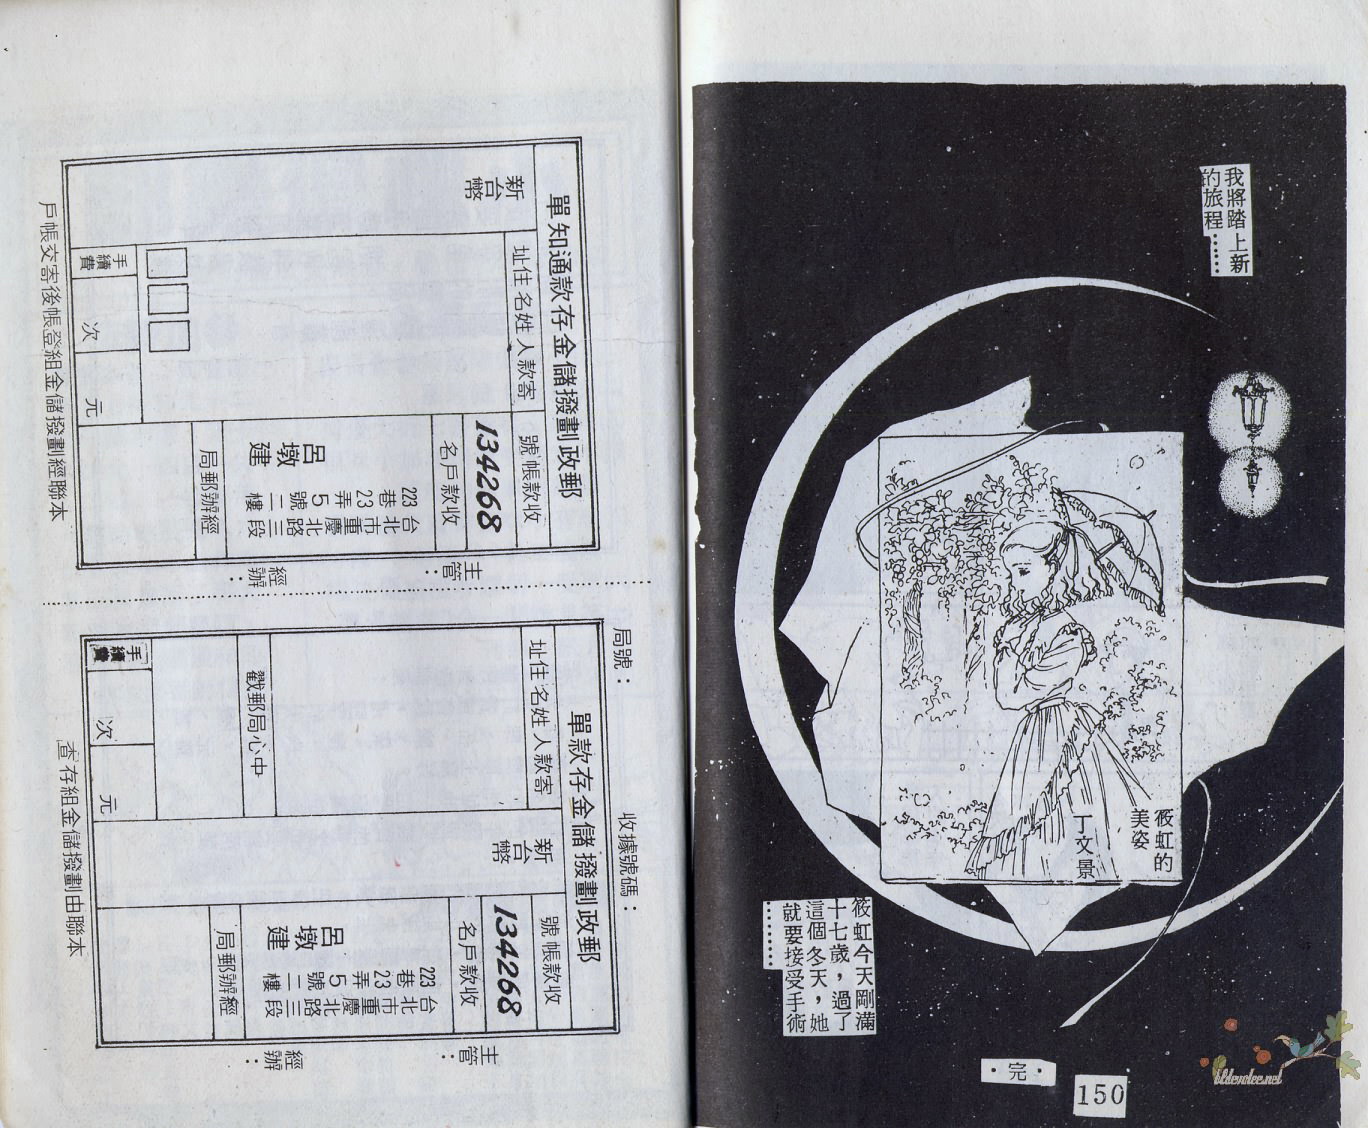 我將踏上新
的旅程……
奇
筱虹的
美姿
丁文景
筱虹今天剛滿
十七歲，過了
這個冬天，她
就要接受手術
………
·完·
150
郵政劃撥儲金存款通知單
收款帳號
134268
寄款人姓名住址
新台幣
收款戶名
呂墩建
台北市重慶北路三段
223巷23弄5號二樓
經辦郵局
手續費
次
元
主管：
經辦：
本聯經劃撥儲金組登帳後寄交帳戶
局號：
收據號碼：
郵政劃撥儲金存款單
收款帳號
134268
新台幣
寄款人姓名住址
收款戶名
呂墩建
台北市重慶北路三段
223巷23弄5號二樓
經辦郵局
中心局郵戳
手續費
次
元
主管：
經辦：
本聯由劃撥儲金組存查